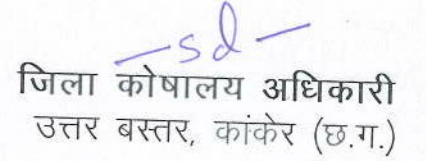 —sd—
जिला कोषालय अधिकारी
उत्तर बस्तर, कांकेर (छ.ग.)